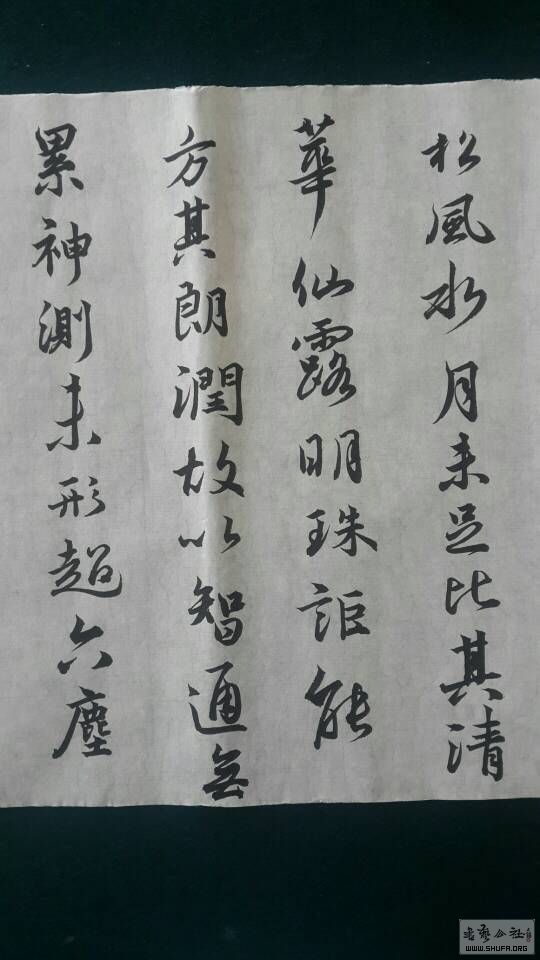 松風水月未足比其清
華仙露明珠詎能
方其朗潤故以智通無
累神測未形超六塵
WWW.SHUFA.ORG